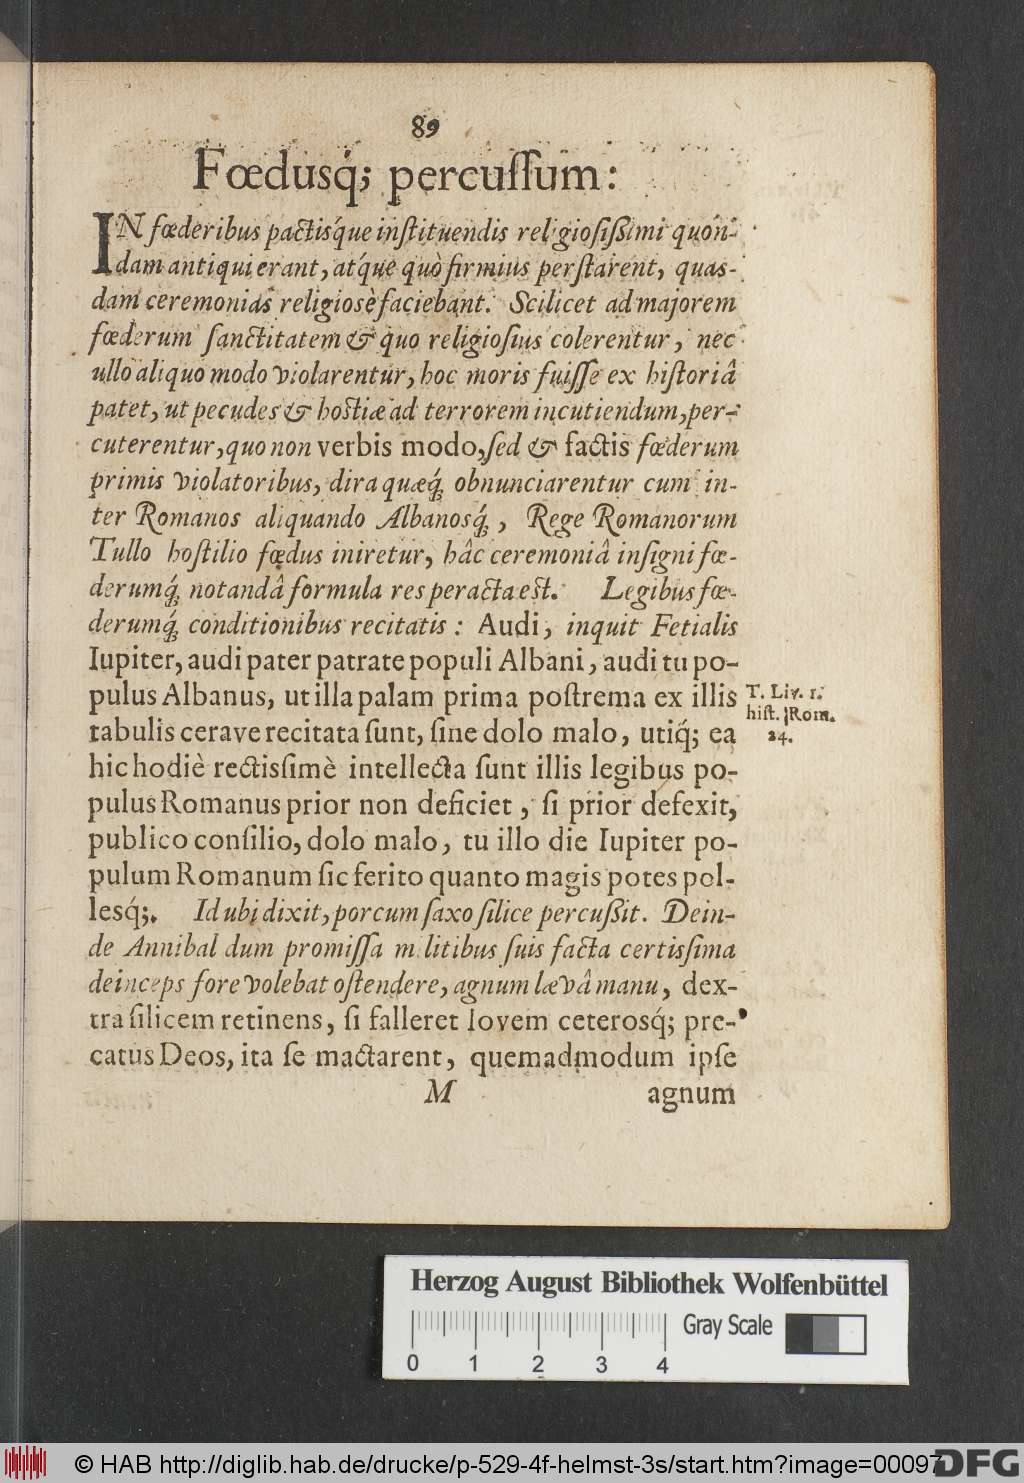 89
Fœdusq́; percuſſum:
IN fœderibus pactisq́ue inſtituendis religioſißimi quón-
dam antiqui erant, atq́ue quò firmius perſtarent, quas-
dam ceremonias religiosè faciebant. Scilicet ad majorem
fœderum ſanctitatem & quo religioſius colerentur, nec
ullo aliquo modo violarentur, hoc moris fuiſſe ex hiſtoriâ
patet, ut pecudes & hostiæ ad terrorem incutiendum, per-
cuterentur, quo non verbis modo, ſed & factis fœderum
primis violatoribus, dira quæq́ obnunciarentur cum in-
ter Romanos aliquando Albanosq́, Rege Romanorum
Tullo hoſtilio fœdus iniretur, hâc ceremoniâ inſigni fœ-
derumq́ notandâ formula res peracta est. Legibus fœ-
derumq́ conditionibus recitatis: Audi, inquit Fetialis
Iupiter, audi pater patrate populi Albani, audi tu po-
pulus Albanus, ut illa palam prima poſtrema ex illis
tabulis cerave recitata ſunt, ſine dolo malo, utiq́; ea
hic hodiè rectisſimè intellecta ſunt illis legibus po-
pulus Romanus prior non deficiet, ſi prior defexit,
publico conſilio, dolo malo, tu illo die Iupiter po-
pulum Romanum ſic ferito quanto magis potes pol-
lesq́;. Id ubi dixit, porcum ſaxo ſilice percußit. Dein-
de Annibal dum promiſſa militibus ſuis facta certisſima
deinceps fore volebat oſtendere, agnum lævâ manu, dex-
tra ſilicem retinens, ſi falleret Iovem ceterosq́; pre-
catus Deos, ita ſe mactarent, quemadmodum ipſe
M agnum
T. Liv. 1.
hiſt. Rom.
24.
Herzog August Bibliothek Wolfenbüttel
Gray Scale
0 1 2 3 4
© HAB http://diglib.hab.de/drucke/p-529-4f-helmst-3s/start.htm?image=00097
DFG